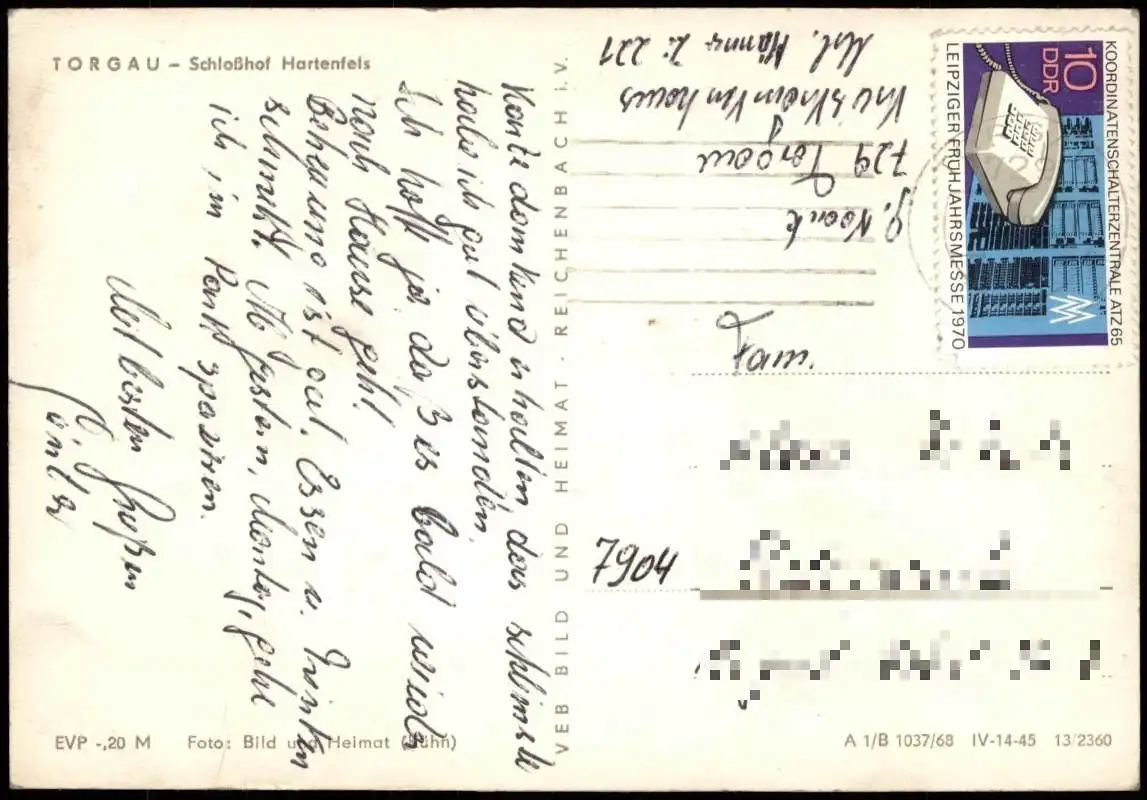 TORGAU – Schloßhof Hartenfels
Karte dankend erhalten, das schlimste
habe ich gut überstanden.
Ich hoffe ja, daß es bald wieder
nach Hause geht.
Behandlung ist gut. Essen u. Trinken
schmekt. Ab gestern, Montag, gehe
ich im Park spaziren.
Mit besten Grüßen
Günter
VEB BILD UND HEIMAT · REICHENBACH I. V.
G. Noack
729 Torgau
Kreiskrankenhaus
Z: 221
KOORDINATENSCHALTERZENTRALE ATZ 65
10
DDR
LEIPZIGER FRÜHJAHRSMESSE 1970
Fam.
7904
EVP -,20 M Foto: Bild und Heimat (Kühn)
A 1/B 1037/68 IV-14-45 13/2360